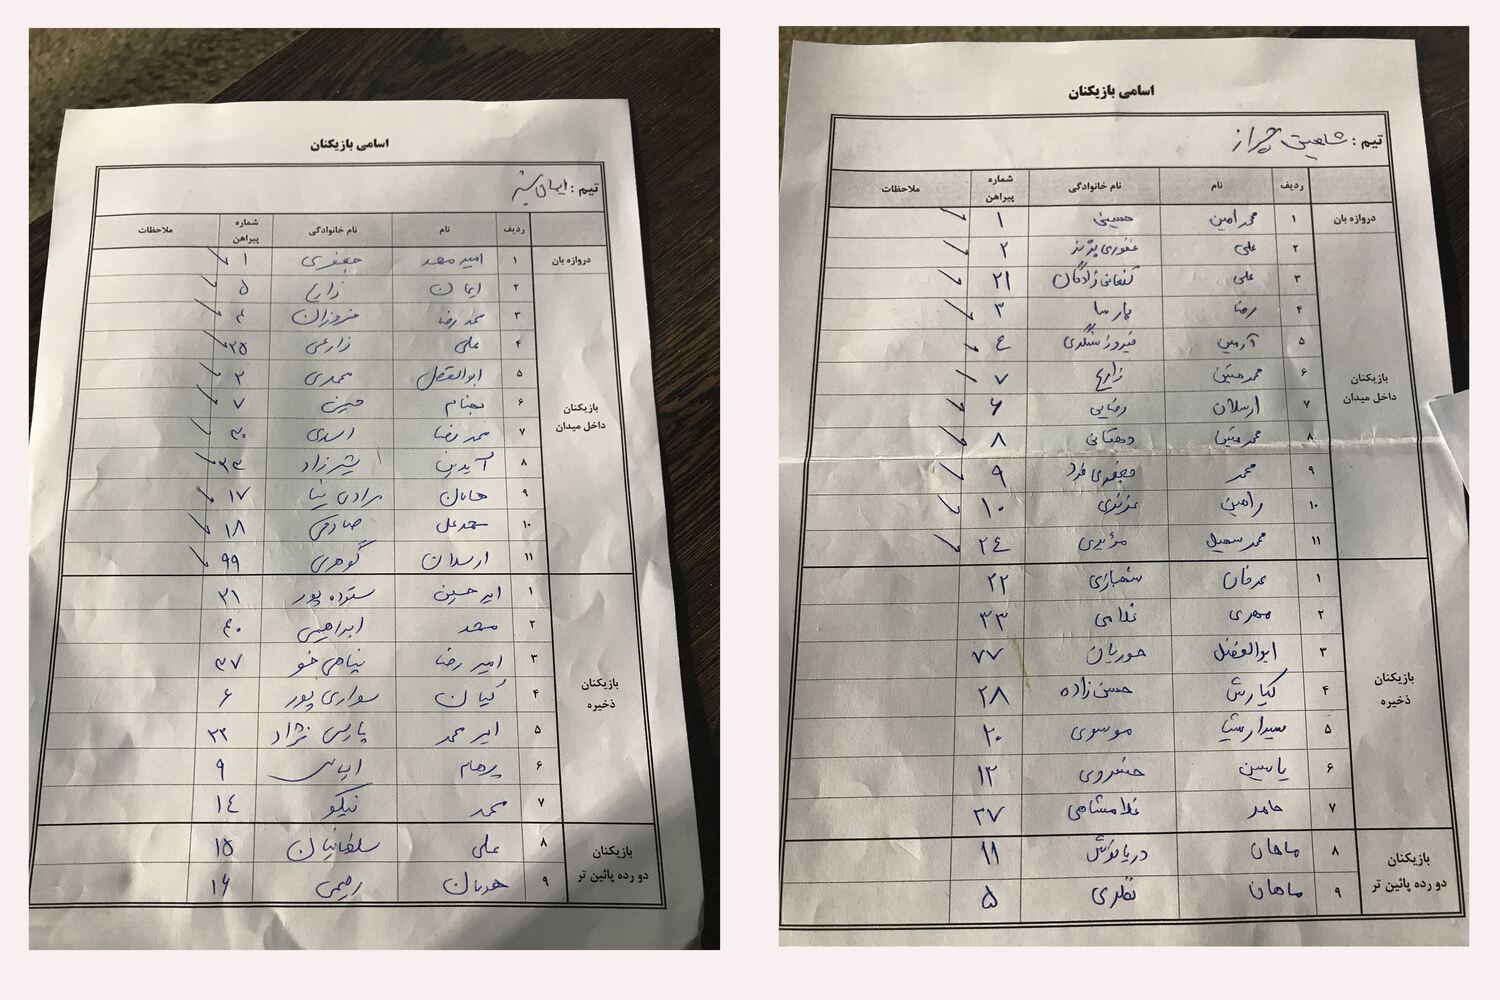 اسامی بازیکنان
تیم : ایمان
ردیف نام نام خانوادگی شماره پیراهن ملاحظات
دروازه بان ۱ امیر مهد جعفری ۱
بازیکنان داخل میدان
۲ ایمان زارع ۵
۳ محمد رضا فروزان ۴
۴ علی زارعی ۲۵
۵ ابوالفضل محمدی ۲
۶ بهنام ۷
۷ محمدرضا اسدی ۳۰
۸ آیدین شیرزاد ۳۳
۹ ماهان مرادی نیا ۱۷
۱۰ محمدعلی صادقی ۱۸
۱۱ ارسلان گوهری ۹۹
بازیکنان ذخیره
۱ امیر حسین ستوده پور ۲۱
۲ مهد ابراهیمی ۴۰
۳ امیر رضا پناهی خو ۳۷
۴ کیان سواری پور ۶
۵ امیر محمد پارسی نژاد ۲۲
۶ پرهام ۹
۷ محمد نیکو ۱۴
بازیکنان دو رده پائین تر
۸ علی سلطانیان ۱۵
۹ رحیمی ۱۶
اسامی بازیکنان
تیم : شاهین
ردیف نام نام خانوادگی شماره پیراهن ملاحظات
دروازه بان ۱ محمد امین حسینی ۱
بازیکنان داخل میدان
۲ علی غفوری ۲
۳ علی کنعانی زادگان ۲۱
۴ رضا پارسا ۳
۵ آرمین ۴
۶ محمد متین زارع ۷
۷ ارسلان رضایی ۶
۸ محمد متین دهقانی ۸
۹ محمد جعفری فرد ۹
۱۰ رامین عزیزی ۱۰
۱۱ محمد سهیل مؤیدی ۲۴
بازیکنان ذخیره
۱ عرفان شهبازی ۲۲
۲ مهدی غلامی ۳۳
۳ ابوالفضل حوریان ۷۷
۴ کیارش حسن زاده ۲۸
۵ موسوی ۲۰
۶ یاسین خسروی ۱۲
۷ حامد غلامشاهی ۲۷
بازیکنان دو رده پائین تر
۸ ماهان دریانوش ۱۱
۹ ماهان نظری ۵